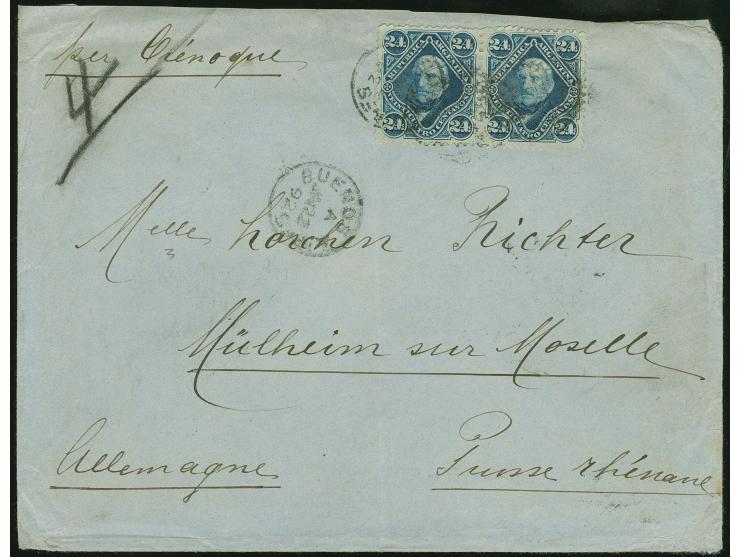 per Orénoque
24 24 24 24
REPUBLICA ARGENTINA REPUBLICA ARGENTINA
VEINTICUATRO CENTAVOS VEINTICUATRO CENTAVOS
24 24 24 24
BUENOS
Melle Lorchen Richter
Mülheim sur Moselle
Allemagne Prusse rhénane